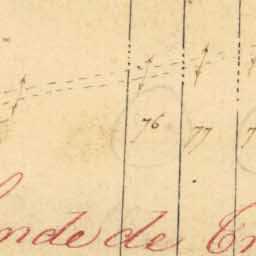 76 77 7
nde de